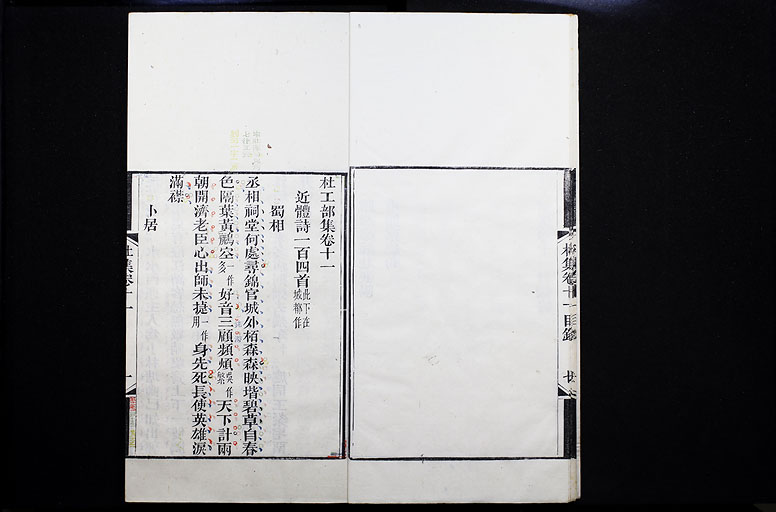 杜集卷十一目錄
杜工部集卷十一
近體詩一百四首此下在成都作
蜀相
丞相祠堂何處尋錦官城外栢森森映堦碧草自春
色隔葉黃鸝空一作多好音三顧頻煩一作繁天下計兩
朝開濟老臣心出師未捷一作用身先死長使英雄淚
滿襟
卜居
杜集卷十一
一